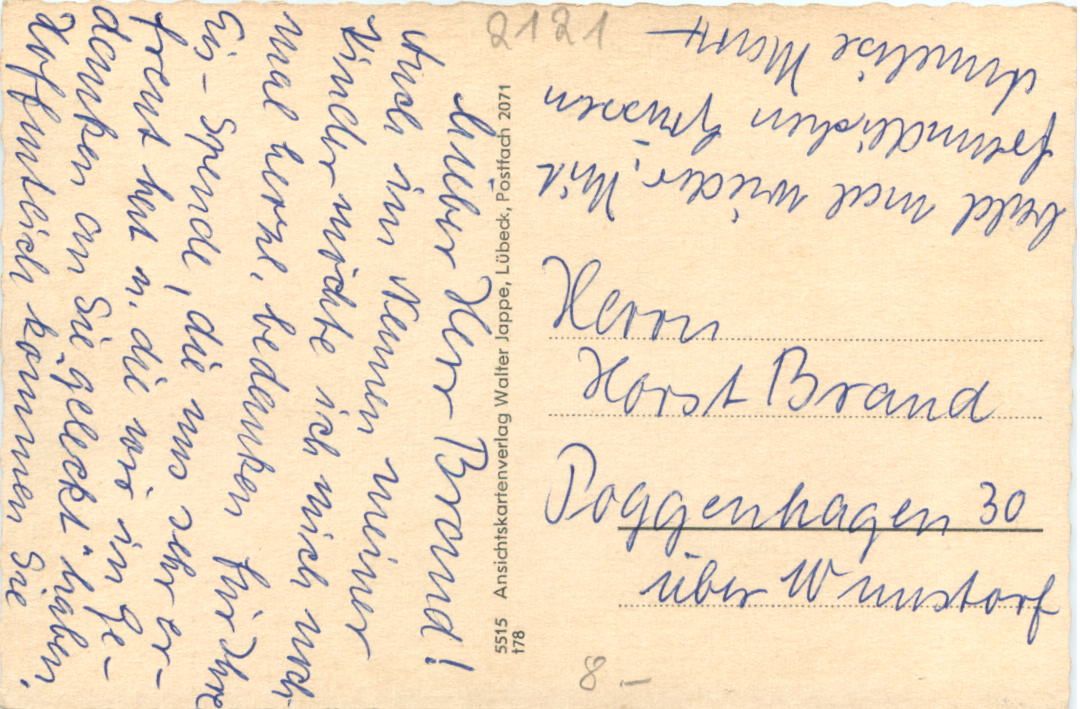 2121
Lieber Herr Brand!
Auch im Namen meiner
Kinder möchte ich mich noch
mal herzl. bedanken für Ihre
Eis-Spende, die uns sehr er-
freut hat u. die wir in Ge-
danken an Sie "geleckt" haben.
Hoffentlich kommen Sie
bald mal wieder, Mit
freundlichen Grüssen
Annelise
5515 Ansichtskartenverlag Walter Jappe, Lübeck, Postfach 2071
t78
Herrn
Horst Brand
Poggenhagen 30
über Wunstorf
8.–